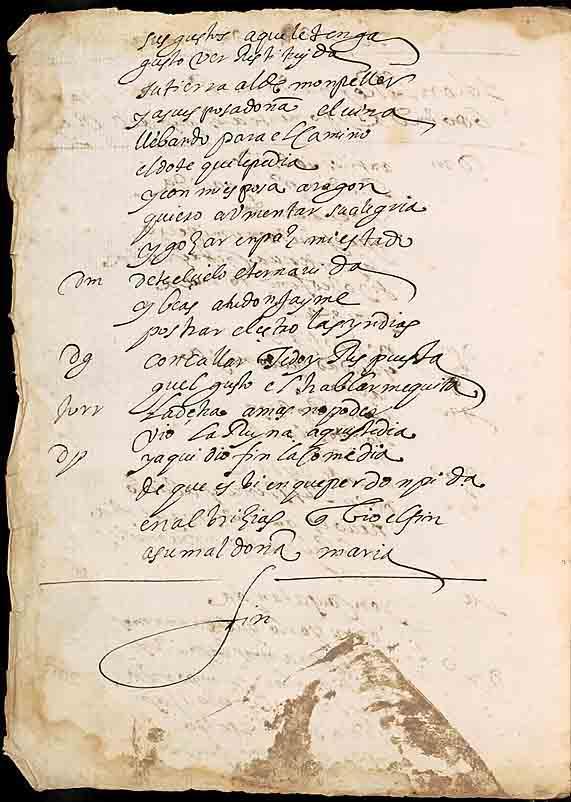 sus gustos a que le tenga
gusto ver Restituyda
su tierra al de monpeller
y a su esposa doña elvira
llebando para el camino
el dote que le pedia
y con mi esposa aragon
quiero aumentar su alegria
y goçar en paz mi estado
dm de te el çielo eterna vida
y beas a tu don Jayme
postrar el çetro las yndias
dg con callar os e doy Respuesta
quel gusto el hablar me quita
torr la dicha a mas no poder
vio la Reyna aqueste dia
dp y aqui dio fin la comedia
de que es bien que perdon pida
en albriçias q dio el fin
a su mal doña maria
fin